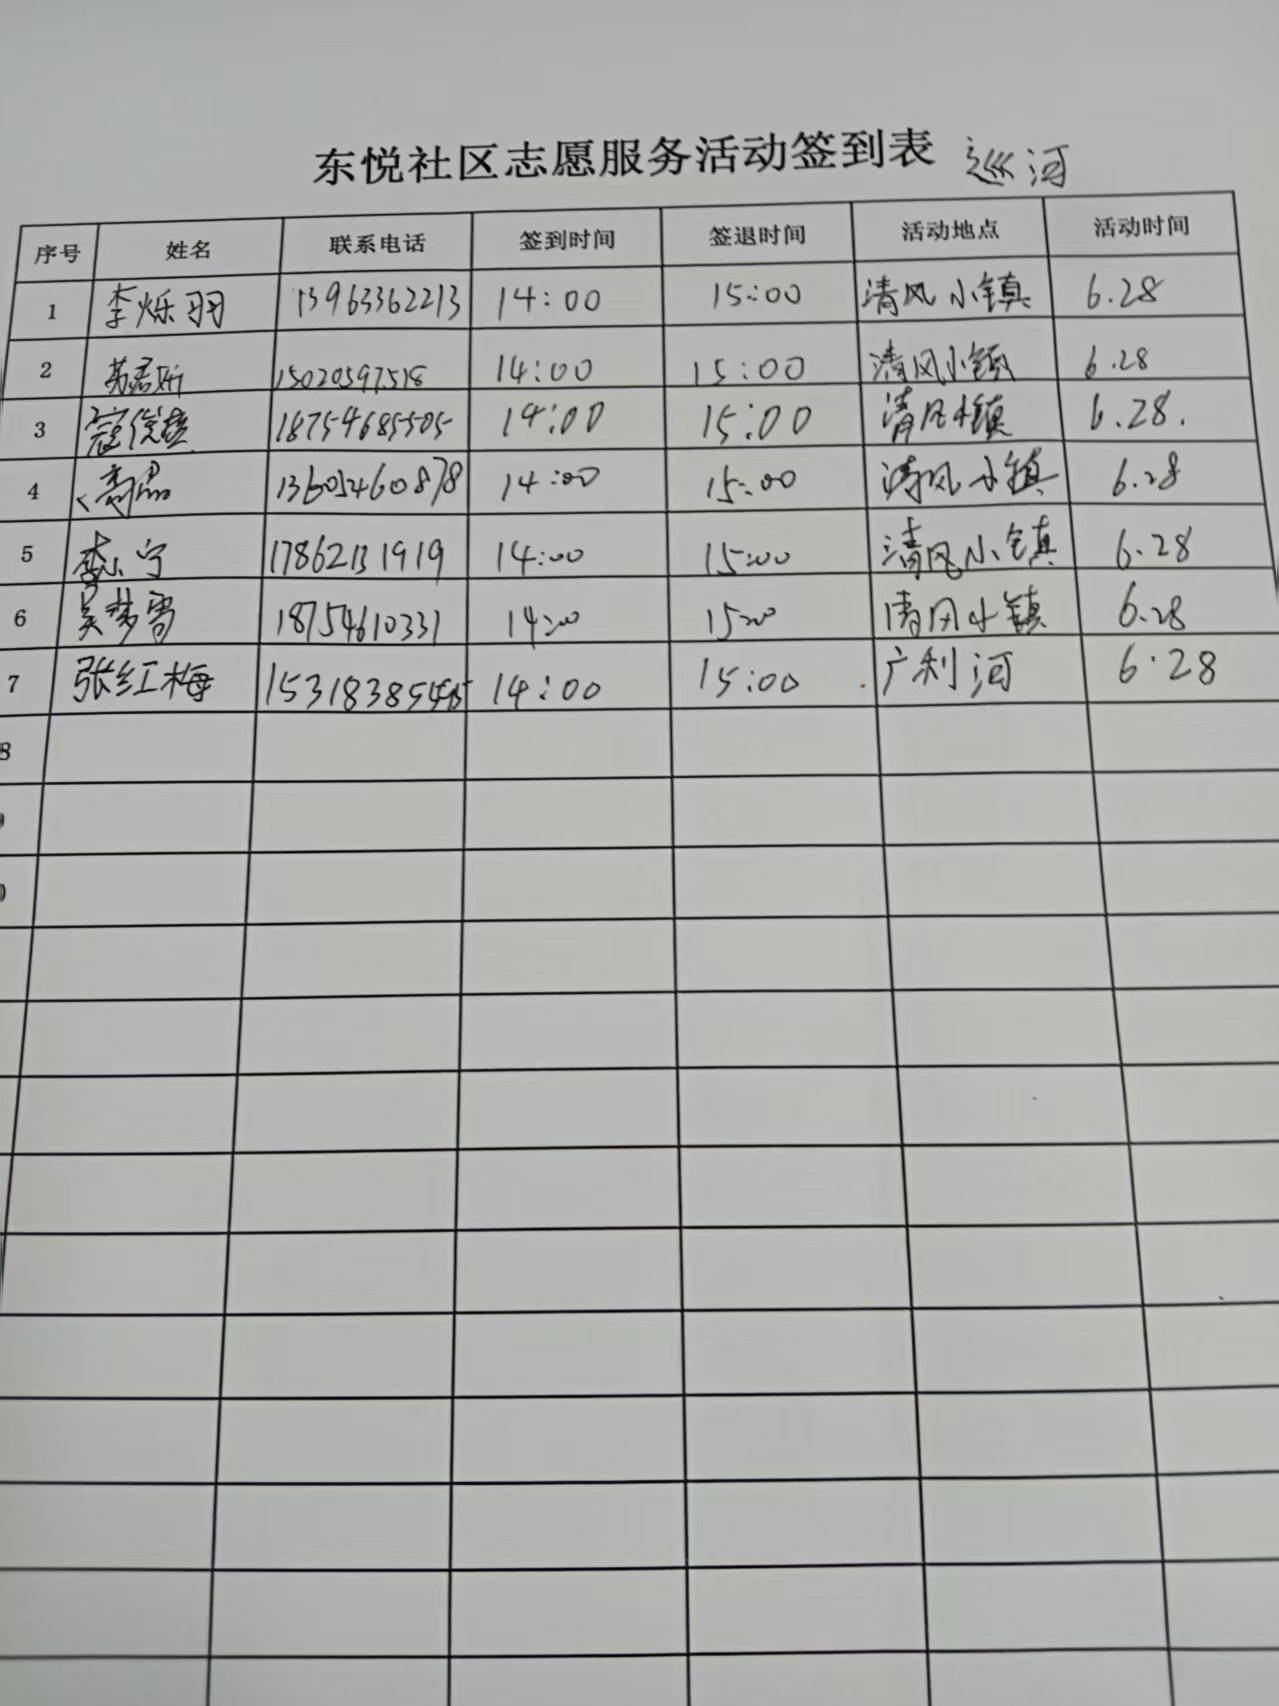 东悦社区志愿服务活动签到表 巡河
序号 姓名 联系电话 签到时间 签退时间 活动地点 活动时间
1 李烁羽 13963362213 14:00 15:00 清风小镇 6.28
2 15020597518 14:00 15:00 清风小镇 6.28
3 18754685505 14:00 15:00 清风小镇 6.28.
4 13605460878 14:00 15:00 清风小镇 6.28
5 李小宁 17862131919 14:00 15:00 清风小镇 6.28
6 吴梦雪 18754610331 14:00 15:00 清风小镇 6.28
7 张红梅 14:00 15:00 广利河 6.28
8